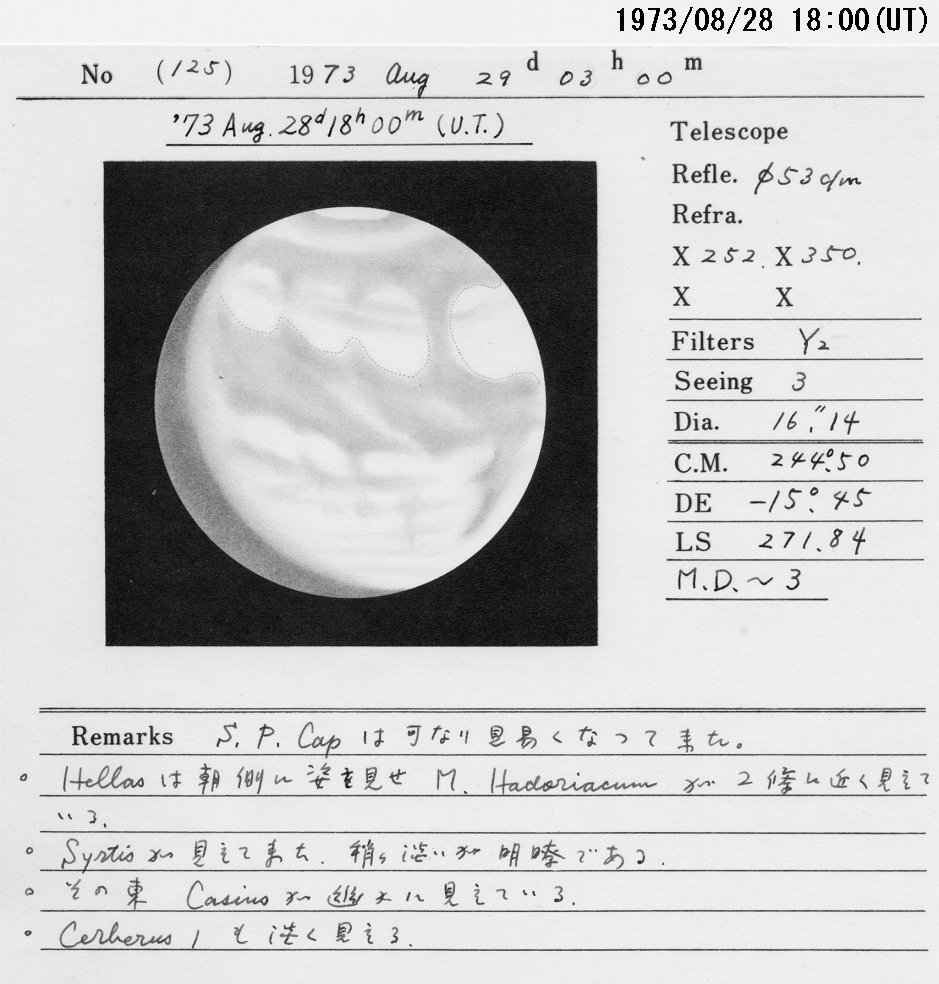 1973/08/28 18:00(UT)
No (125) 1973 Aug 29 d 03 h 00 m
'73 Aug. 28d 18h 00m (U.T.)
Telescope
Refle. φ53 c/m
Refra.
X 252. X 350.
X X
Filters Y2
Seeing 3
Dia. 16."14
C.M. 244.°50
DE -15.°45
LS 271.84
M.D. ~ 3
Remarks S. P. Cap は可なり見易くなって来た。
○ Hellas は朝側に姿を見せ M. Hadoriacum が 2條に近く見えて
いる.
○ Systis が見えて来た. 稍々淡いが明瞭である.
○ その東 Casius が 大に見えている.
○ Cerberus 1 も淡く見える.